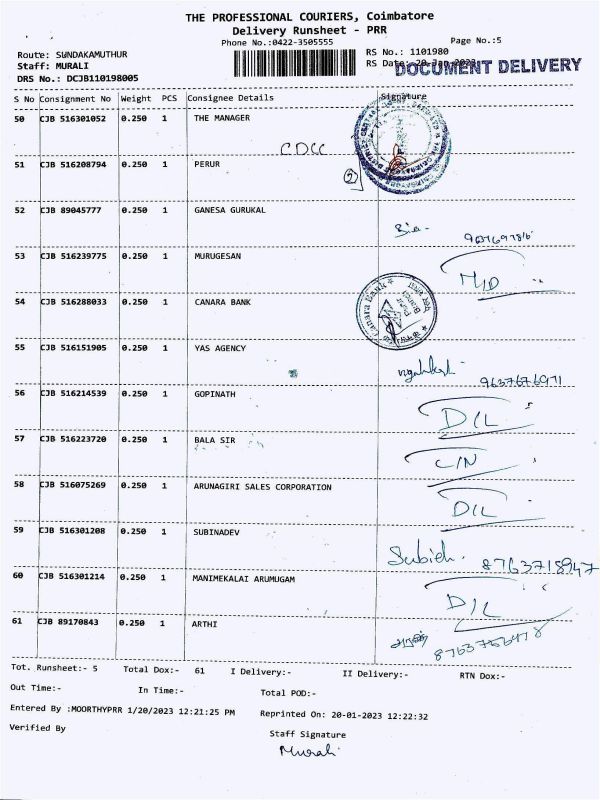 THE PROFESSIONAL COURIERS, Coimbatore
Delivery Runsheet - PRR
Phone No.:0422-3505555
Page No.:5
Route: SUNDAKAMUTHUR
RS No.: 1101980
Staff: MURALI
RS Date: 20 Jan 2023
DOCUMENT DELIVERY
DRS No.: DCJB110198005
S No Consignment No Weight PCS Consignee Details Signature
50 CJB 516301052 0.250 1 THE MANAGER
CDCC
51 CJB 516208794 0.250 1 PERUR
2
52 CJB 89045777 0.250 1 GANESA GURUKAL
53 CJB 516239775 0.250 1 MURUGESAN
54 CJB 516288033 0.250 1 CANARA BANK
Canara Bank
55 CJB 516151905 0.250 1 YAS AGENCY
9637676971
56 CJB 516214539 0.250 1 GOPINATH
D/L
57 CJB 516223720 0.250 1 BALA SIR
C/N
58 CJB 516075269 0.250 1 ARUNAGIRI SALES CORPORATION
D/L
59 CJB 516301208 0.250 1 SUBINADEV
8763718947
60 CJB 516301214 0.250 1 MANIMEKALAI ARUMUGAM
D/L
61 CJB 89170843 0.250 1 ARTHI
Tot. Runsheet:- 5 Total Dox:- 61 I Delivery:- II Delivery:- RTN Dox:-
Out Time:- In Time:- Total POD:-
Entered By :MOORTHYPRR 1/20/2023 12:21:25 PM Reprinted On: 20-01-2023 12:22:32
Verified By
Staff Signature
Murali